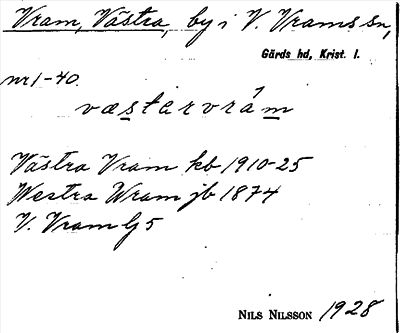 Vram, Västra, by i V. Vrams sn,
Gärds hd, Krist. l.
nr 1-40.
væstərvrám
Västra Vram kb 1910-25
Westra Wram jb 1874
V. Vram Gj 5
NILS NILSSON 1928